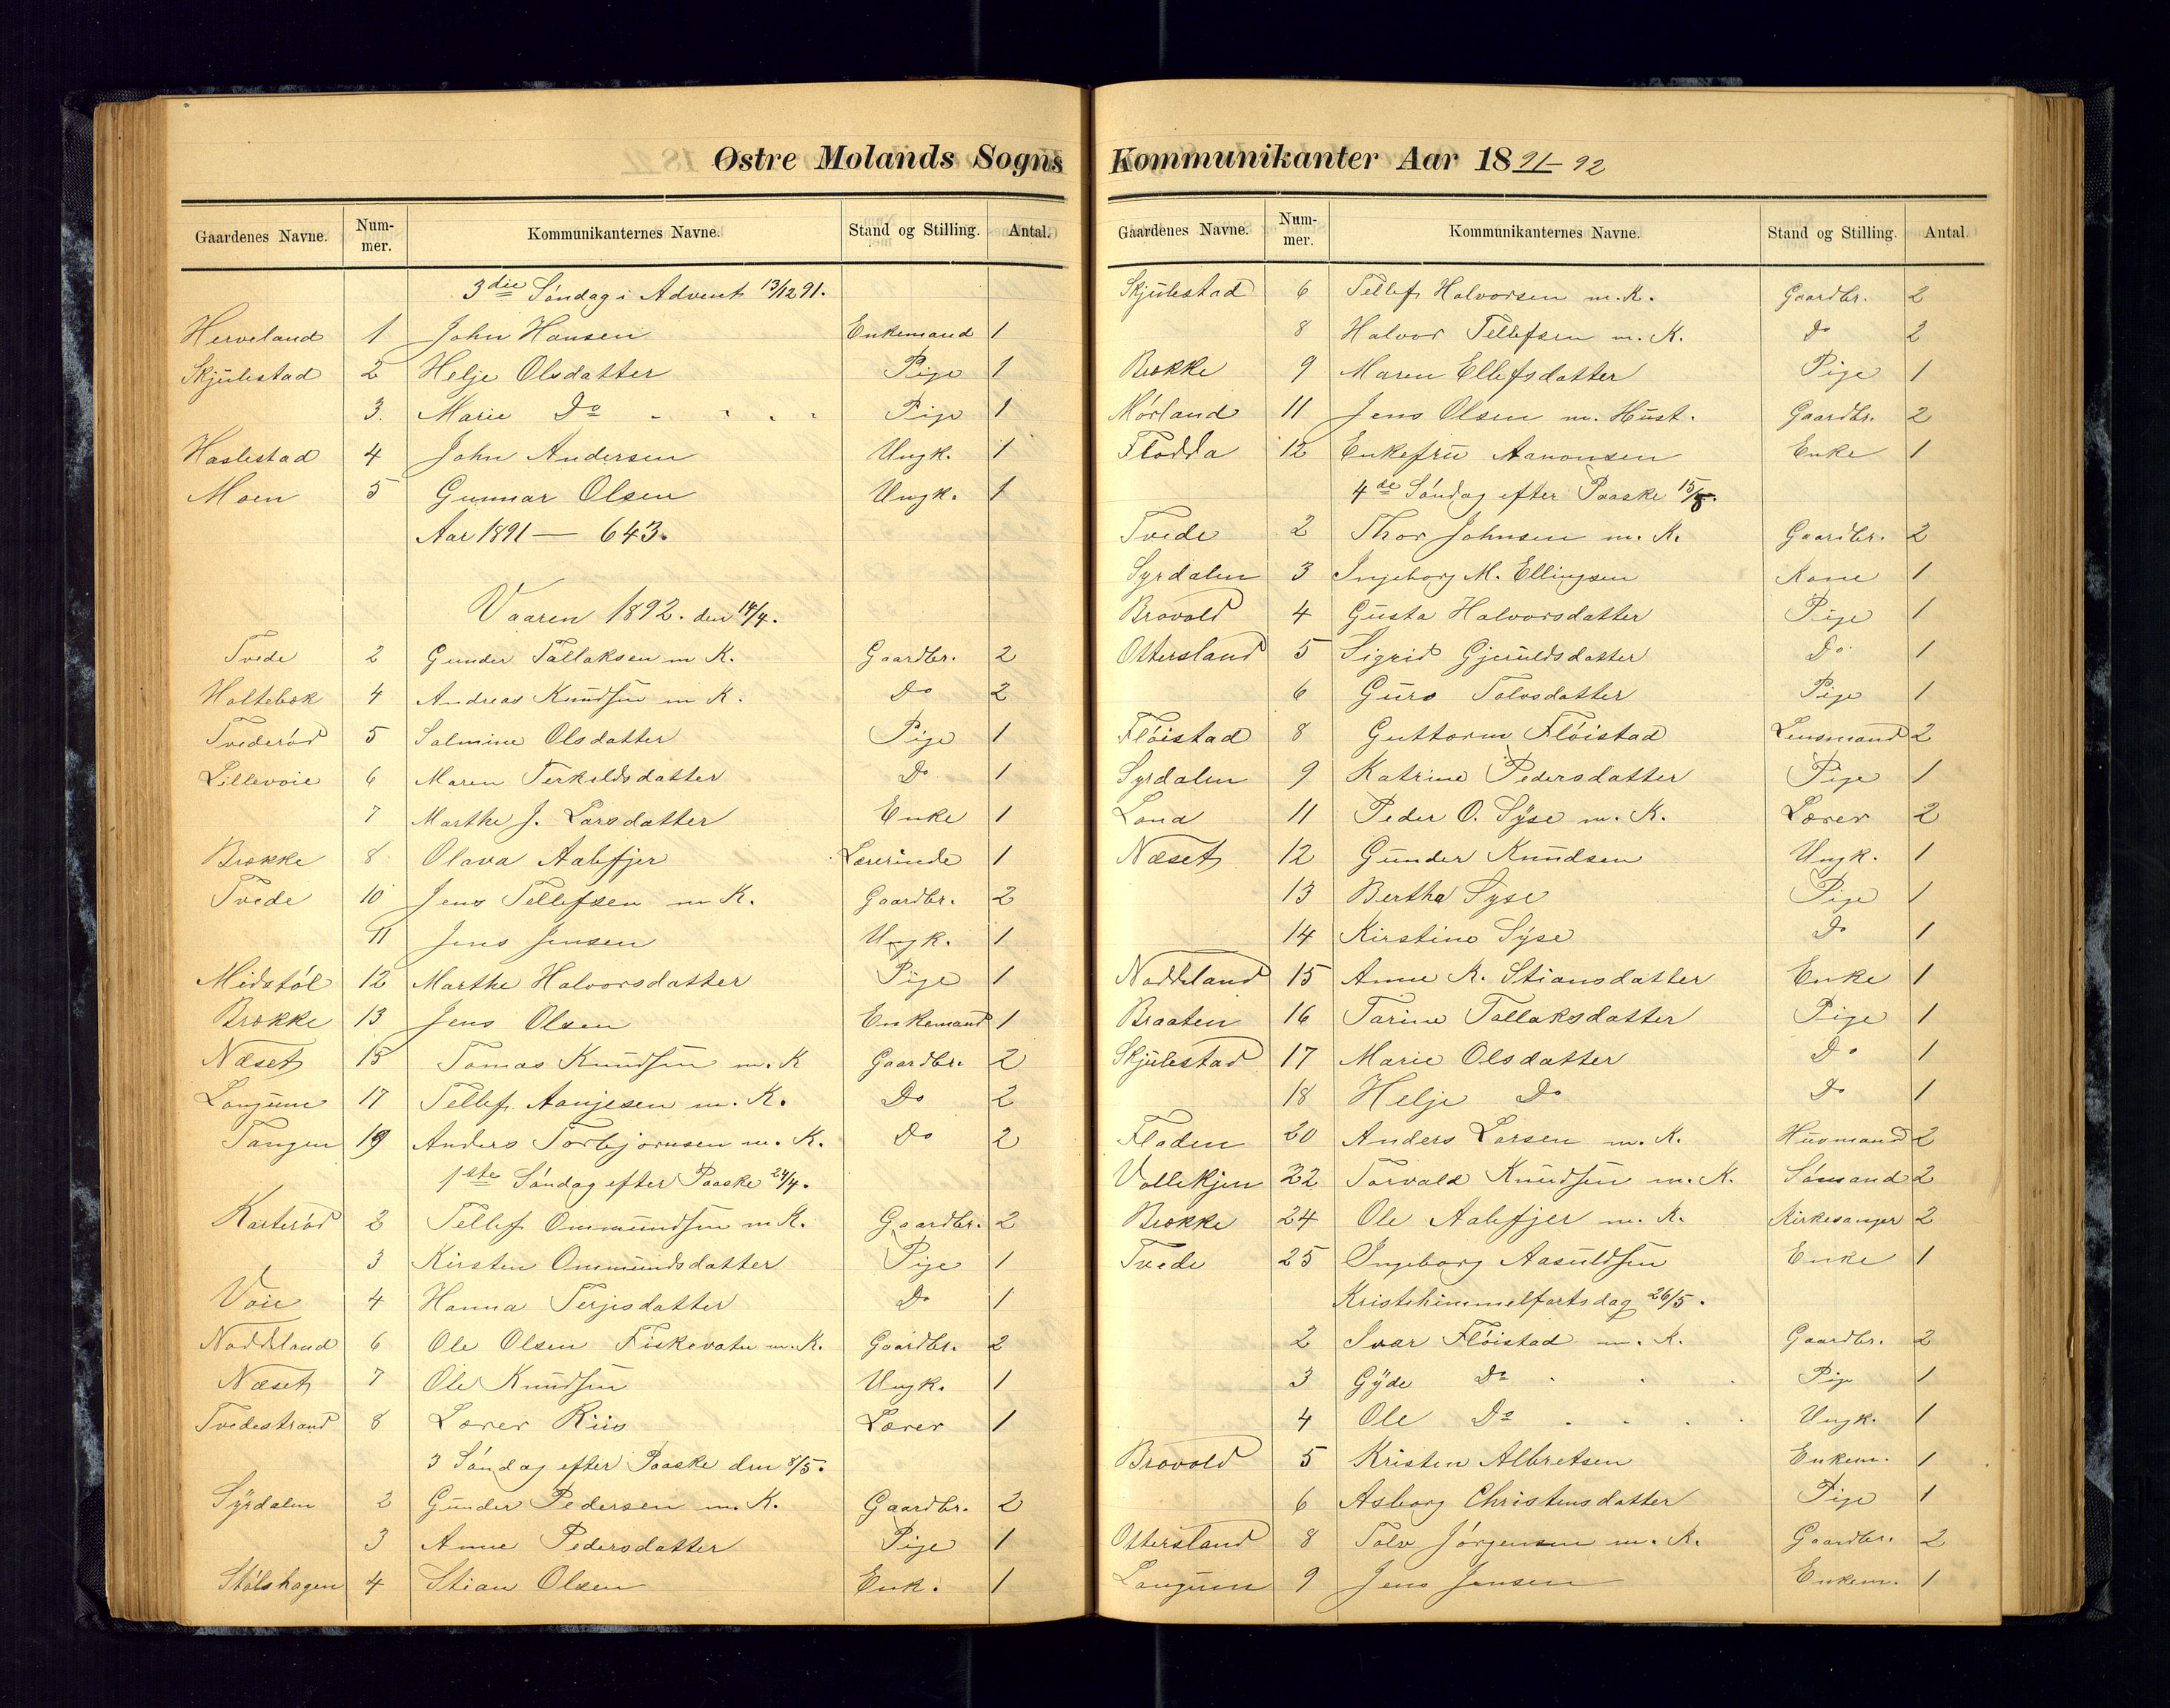 Østre Molands Sogns
Gaardenes Navne. Nummer. Kommunikanternes Navne. Stand og Stilling. Antal.
3die Søndag i Advent 13/12 91.
Herveland 1 John Hansen Enkemand 1
Skjulestad 2 Helje Olsdatter Pige 1
3. Marie Do Pige 1
Haslestad 4 John Andersen Ungk. 1
Moen 5 Gunnar Olsen Ungk. 1
Aar 1891 — 643.
Vaaren 1892. den 14/4.
Tvede 2 Gunder Tallaksen m K. Gaardbr. 2
Holtebek 4 Andreas Knudsen m K. Do 2
Tvederød 5 Salmine Olsdatter Pige 1
Lillevoie 6 Maren Terkeldsdatter Do 1
7 Marthe J. Larsdatter Enke 1
Brække 8 Olava Aalefjer Lærerinde 1
Tvede 10 Jens Tellefsen m K. Gaardbr. 2
11 Jens Jensen Ungk. 1
Midstøl 12 Marthe Halvorsdatter Pige 1
Brække 13 Jens Olsen Enkemand 1
Næset 15 Tomas Knudsen m. K Gaardbr. 2
Langum 17 Tellef Aanjesen m. K. Do 2
Tangen 19 Anders Torbjørnsen m. K. Do 2
1ste Søndag efter Paaske 24/4.
Karterød 2 Tellef Ommundsen m K. Gaardbr. 2
3 Kirsten Ommundsdatter Pige 1
Voie 4 Hanna Terjesdatter Do 1
Noddeland 6 Ole Olsen Fiskevatn m. K. Gaardbr. 2
Næset 7 Ole Knudsen Ungk. 1
Tvedestrand 8 Lærer Riis Lærer 1
3 Søndag efter Paaske den 8/5.
Syrdalen 2 Gunder Pedersen m. K. Gaardbr. 2
3 Anne Pedersdatter Pige 1
Stølshagen 4 Stian Olsen Enk. 1
Kommunikanter Aar 1891–92
Gaardenes Navne. Nummer. Kommunikanternes Navne. Stand og Stilling. Antal.
Skjulestad 6 Tellef Halvorsen m. K. Gaardbr. 2
8 Halvor Tellefsen m. K. Do 2
Brække 9 Maren Ellefsdatter Pige 1
Mørland 11 Jens Olsen m. Hust. Gaardbr. 2
Flodda 12 Enkefru Aanonsen Enke 1
4de Søndag efter Paaske 15/5.
Tvede 2 Thor Johnsen m. K. Gaardbr. 2
Syrdalen 3 Ingeborg M. Ellingsen Kone 1
Brovold 4 Gusta Halvorsdatter Pige 1
Ottersland 5 Sigrid Gjeruldsdatter Do 1
6 Guro Tolvsdatter Pige 1
Fløistad 8 Guttorm Fløistad Lensmand 2
Syrdalen 9 Katrine Pedersdatter Pige 1
Lona 11 Peder O. Syse m. K. Lærer 2
Næset 12 Gunder Knudsen Ungk. 1
13 Bertha Syse Pige 1
14 Kirstine Syse Do 1
Noddeland 15 Anne K. Stiansdatter Enke 1
Braaten 16 Tarine Tallaksdatter Pige 1
Skjulestad 17 Marie Olsdatter Do 1
18 Helje Do Do 1
Floden 20 Anders Larsen m. K. Husmand 2
Vollekjen 22 Torvald Knudsen m. K. Sømand 2
Brække 24 Ole Aalefjer m. K. Kirkesanger 2
Tvede 25 Ingeborg Aasuldsen Enke 1
Kristihimmelfartsdag 26/5.
2 Ivar Fløistad m. K. Gaardbr. 2
3 Gyde Do Pige 1
4 Ole Do Ungk. 1
Brovold 5 Kristen Albretsen Enkem. 1
6 Asborg Christensdatter Pige 1
Ottersland 8 Tolv Jørgensen m. K. Gaardbr. 2
Langum 9 Jens Jensen Enkem. 1